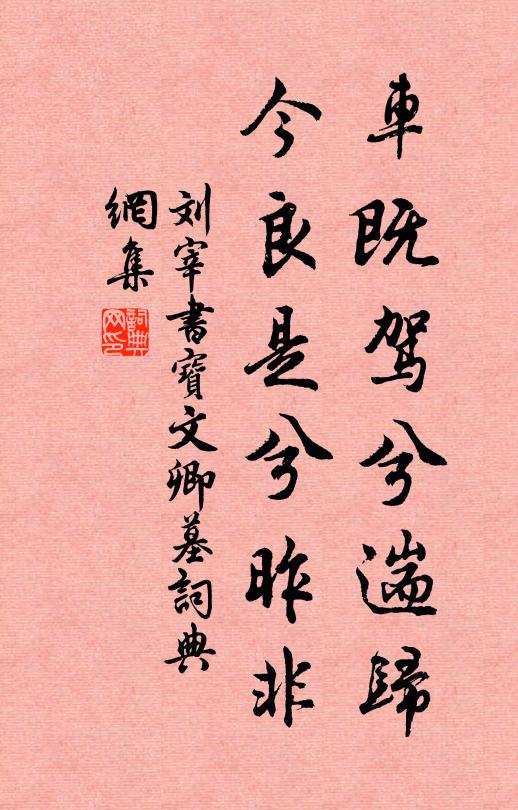 車既駕兮遄歸
今良是兮昨非
刘宰書寶文卿墓詞典
網集
詞典网印